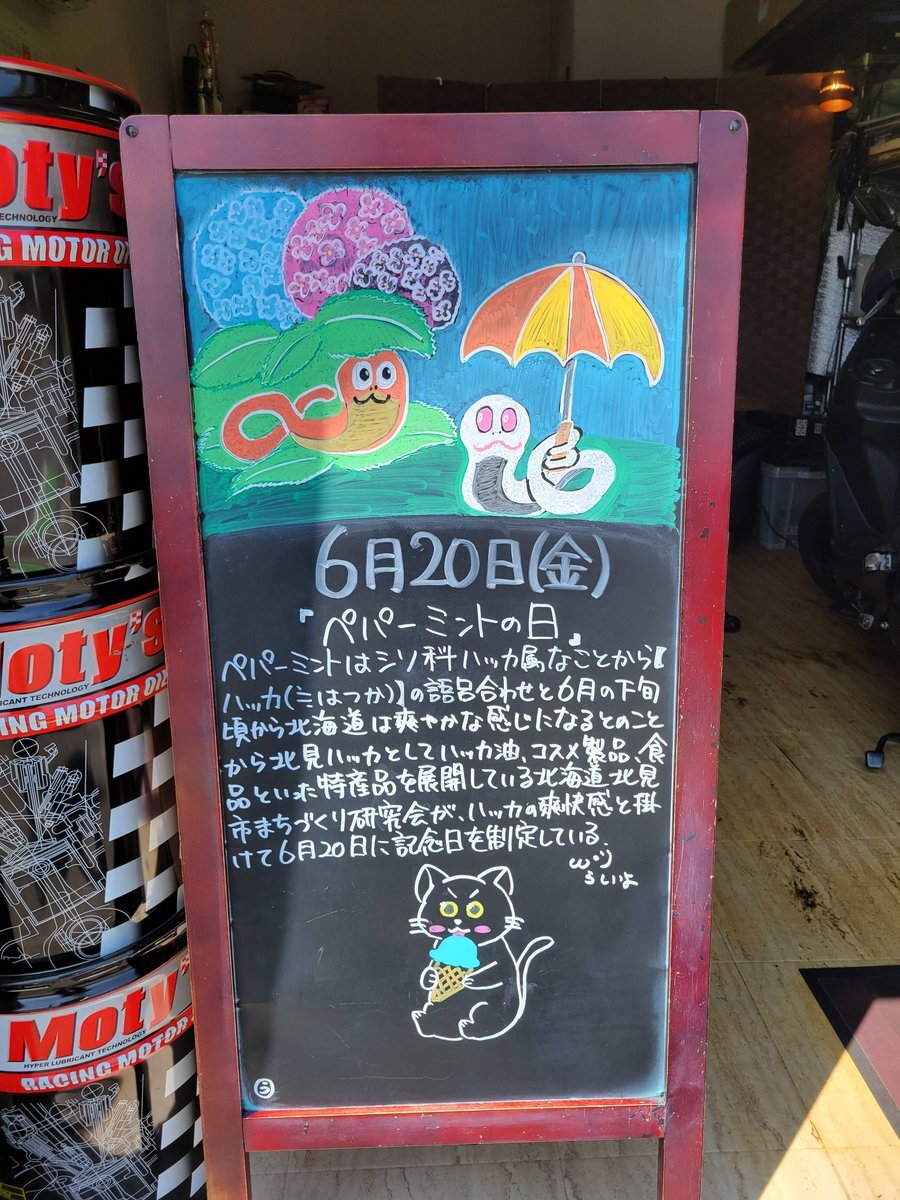 6月20日(金)
『ペパーミントの日』
ペパーミントはシソ科ハッカ属なことから【
ハッカ(ミはつか)】の語呂合わせと6月の下旬
頃から北海道は爽やかな感じになるとのこと
から北見ハッカとしてハッカ油、コスメ製品、食
品といった特産品を展開している北海道北見
市まちづくり研究会が、ハッカの爽快感と掛
けて6月20日に記念日を制定している。
らしいよ
う
oty's
TECHNOLOGY
NG MOTOR OIL
Moty's
LUBRICANT TECHNOLOGY
RACING MOTOR OIL
Moty'
HYPER LUBRICANT TECHNOLOGY
RACING MOTOR